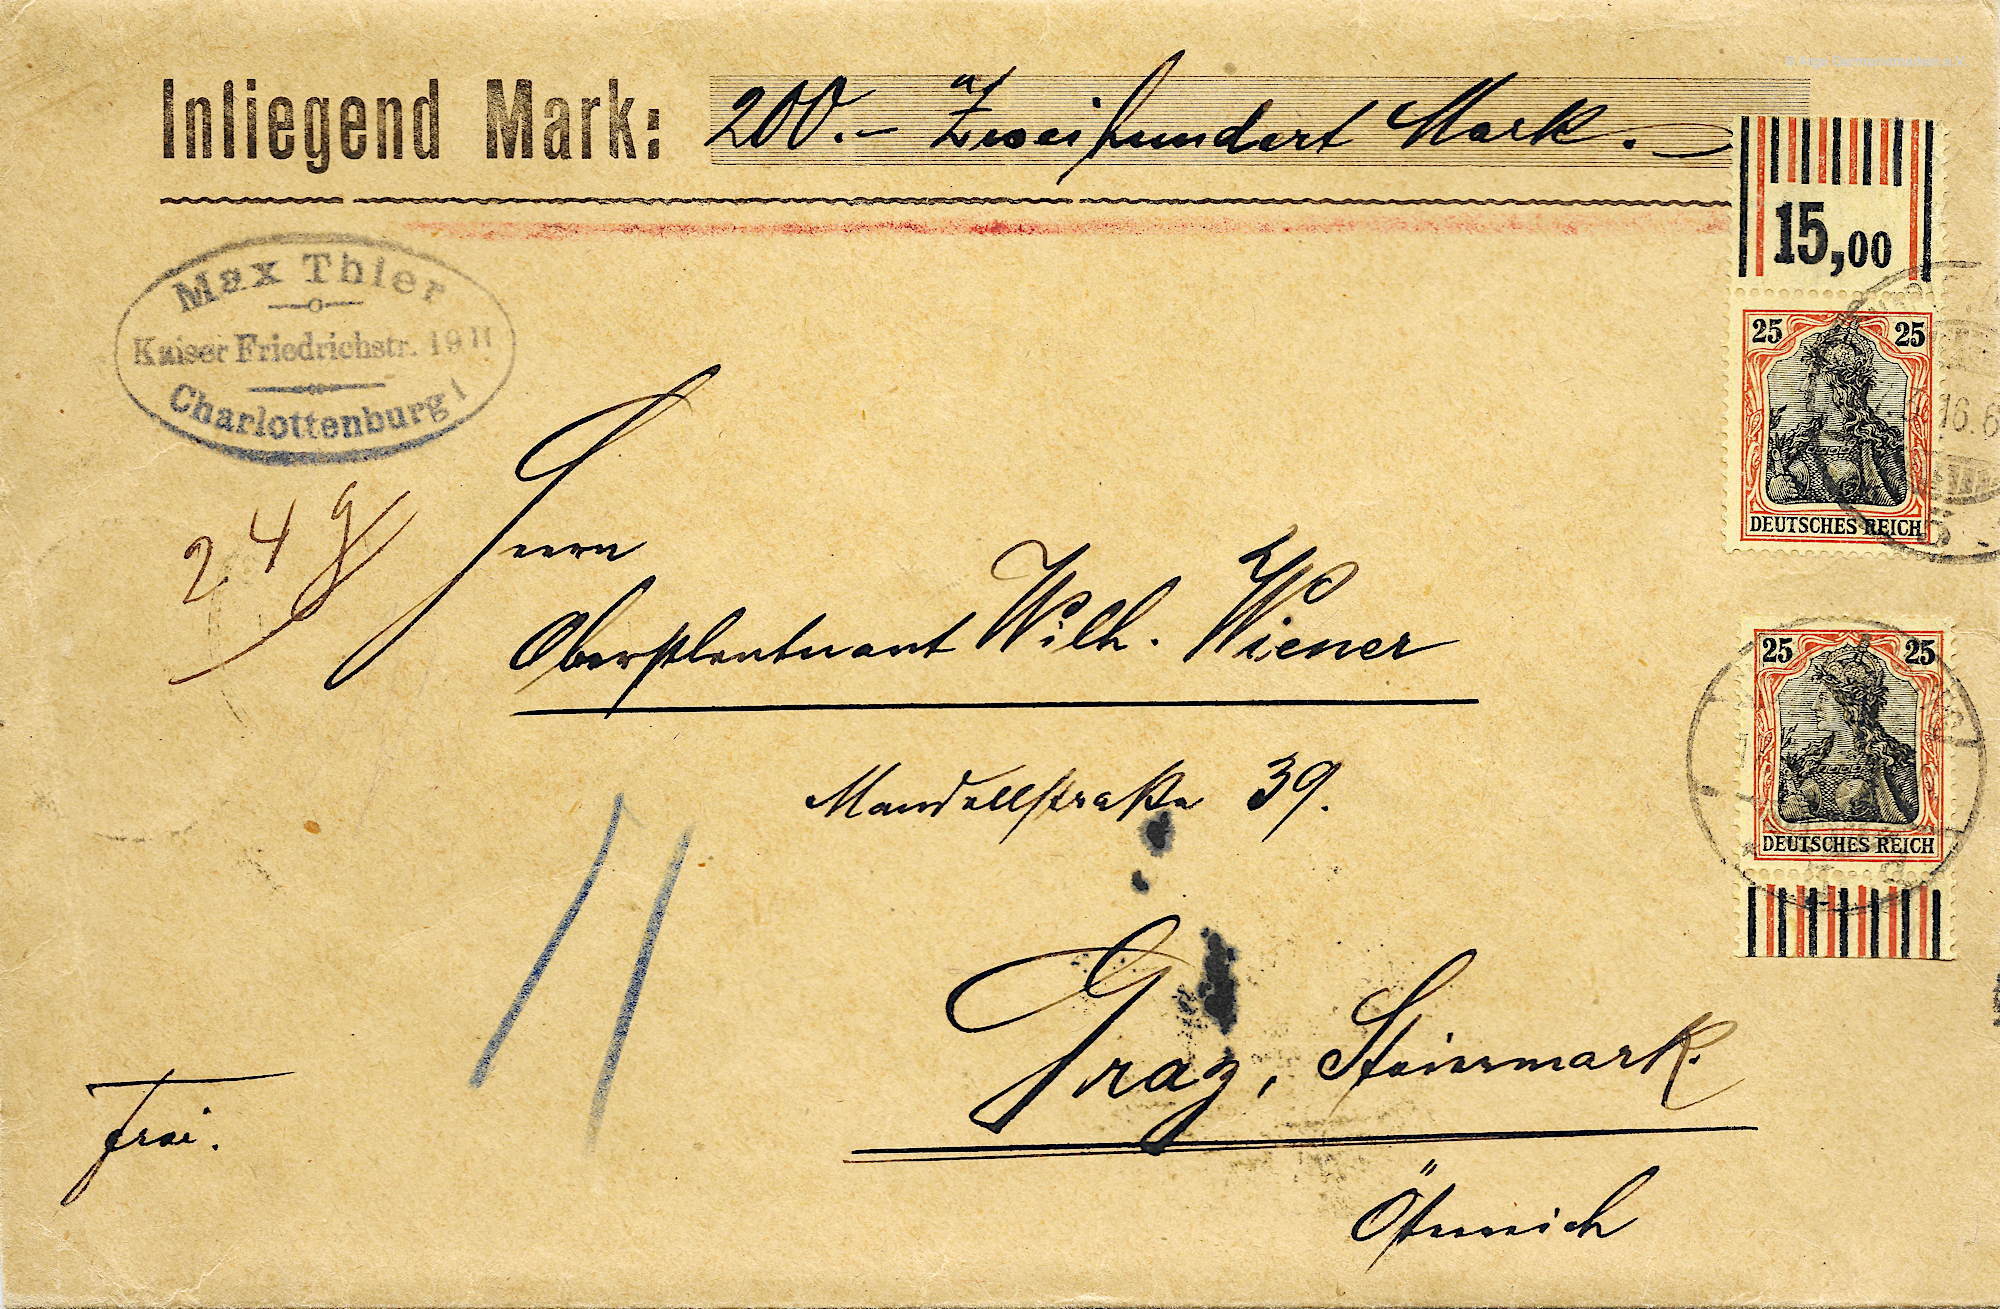 Inliegend Mark: 200.- Zweihundert Mark.
15,00
Max Thier
Kaiser Friedrichstr. 19 II
Charlottenburg 1
25 25
DEUTSCHES REICH
16.6
24 g
Herrn
Oberstleutnant Wilh. Wiener
25 25
DEUTSCHES REICH
Mandellstraße 39.
Graz, Steiermark.
frei.
Österreich